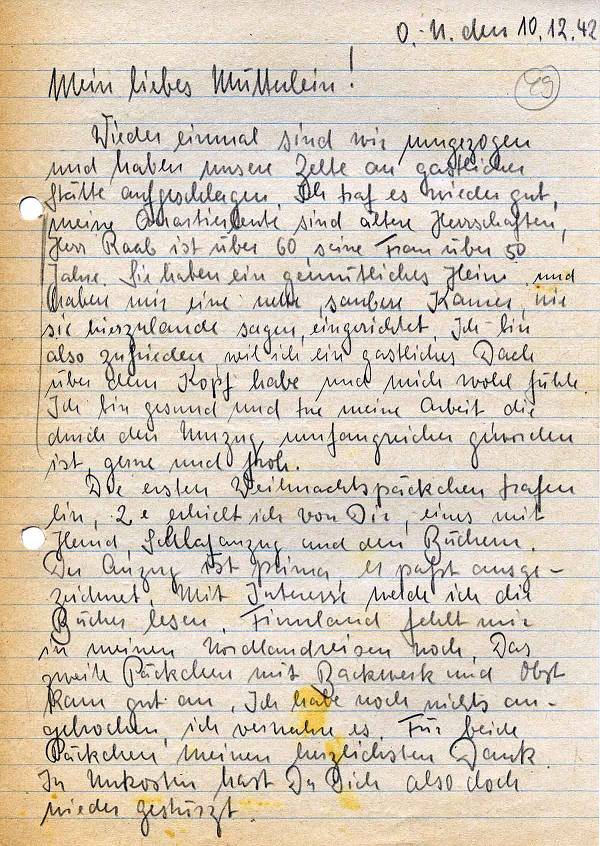 O.-U. den 10.12.42
49
Mein liebes Mütterlein!
Wieder einmal sind wir umgezogen
und haben unsere Zelte an gastlicher
Stätte aufgeschlagen. Ich traf es wieder gut,
meine Quartierleute sind ältere Herrschaften,
Herr Raab ist über 60, seine Frau über 50
Jahre. Sie haben ein gemütliches Heim und
haben mir eine nette, saubere Kamer, wie
sie hierzulande sagen, eingerichtet. Ich bin
also zufrieden, weil ich ein gastliches Dach
über dem Kopf habe und mich wohl fühle.
Ich bin gesund und tue meine Arbeit die
durch den Umzug umfangreicher geworden
ist, gerne und froh.
Die ersten Weihnachtspäckchen trafen
ein, 2 erhielt ich von Dir, eines mit
Hemd, Schlafanzug und den Büchern.
Der Anzug ist prima, es paßt ausge-
zeichnet. Mit Interesse werde ich die
Bücher lesen, Finnland fehlt mir
in meinen Nordlandreisen noch. Das
zweite Päckchen mit Backwerk und Obst
kam gut an. Ich habe noch nichts an-
gebrochen, ich verwahre es. Für beide
Päckchen meinen herzlichsten Dank.
In Unkosten hast Du Dich also doch
wieder gestürzt.